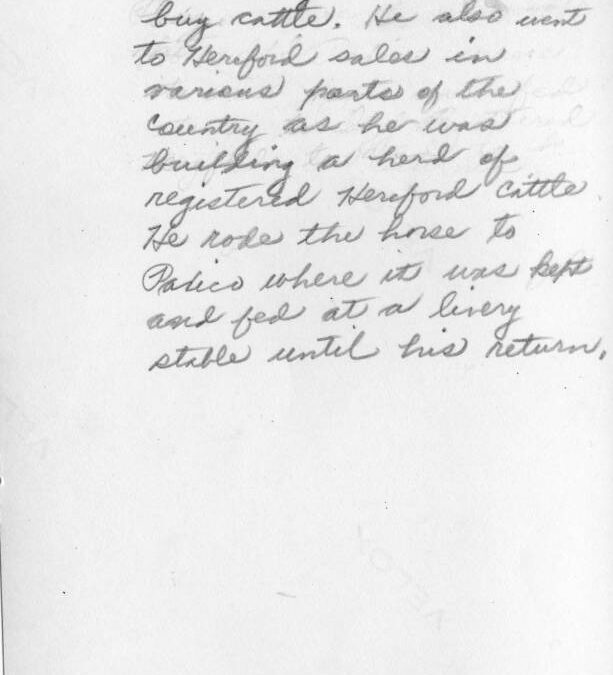 buy cattle. He also went
to Hereford sales in
various parts of the
Country as he was
building a herd of
registered Hereford Cattle
He rode the horse to
where it was kept
and fed at a livery
stable until his return.